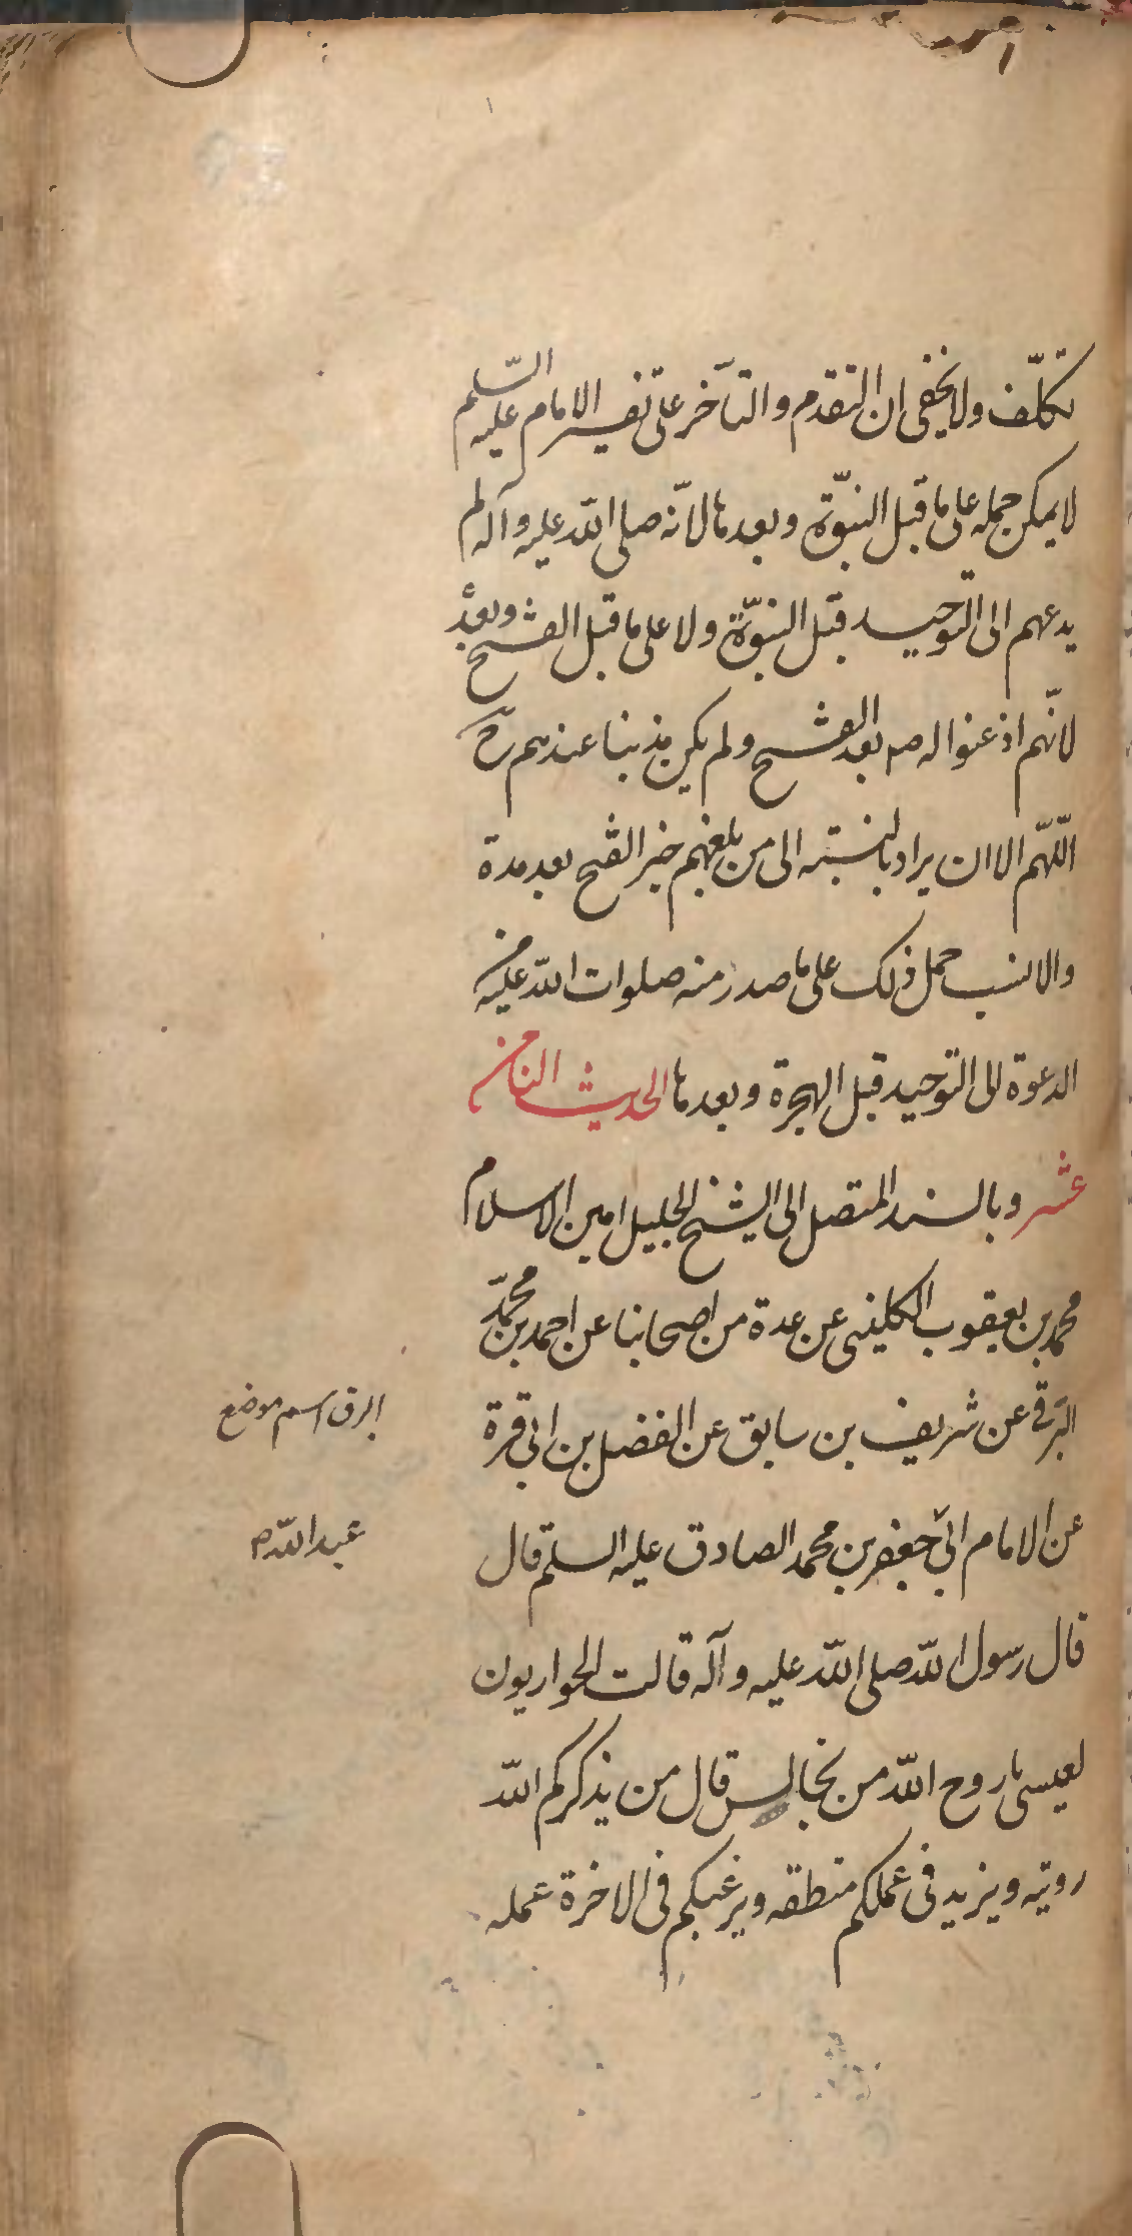 تكلّف ولا يخفى ان التقدم والتأخر على تفسير الامام عليه السّلم
لا يمكن حمله على ما قبل النبوّة وبعدها لانّه صلى الله عليه وآله لم
يدعهم الى التوحيد قبل النبوّة ولا على ما قبل الفتح وبعد
لانّهم اذعنوا له صم بعد الفتح ولم يكن مذنبا عندهم ح
اللّهم الا ان يراد بالنسبته الى من بلغهم خبر الفتح بعد مدة
والانسب حمل ذلك على ما صدر منه صلوات الله عليه من
الدعوة الى التوحيد قبل الهجرة وبعدها الحديث الثامن
عشر وبالسند المتصل الى الشيخ الجليل امين الاسلام
محمد بن يعقوب الكلينى عن عدة من اصحابنا عن احمد بن محمّد
البرقى عن شريف بن سابق عن الفضل بن ابى قرة
البرق اسم موضع
عن الامام ابى جعفر بن محمد الصادق عليه السلم قال
عبد الله م
قال رسول الله صلى الله عليه وآله قالت الحواريون
لعيسى يا روح الله من نجالس قال من يذكركم الله
رويته ويزيد فى عملكم منطقه ويرغبكم فى الاخرة عمله